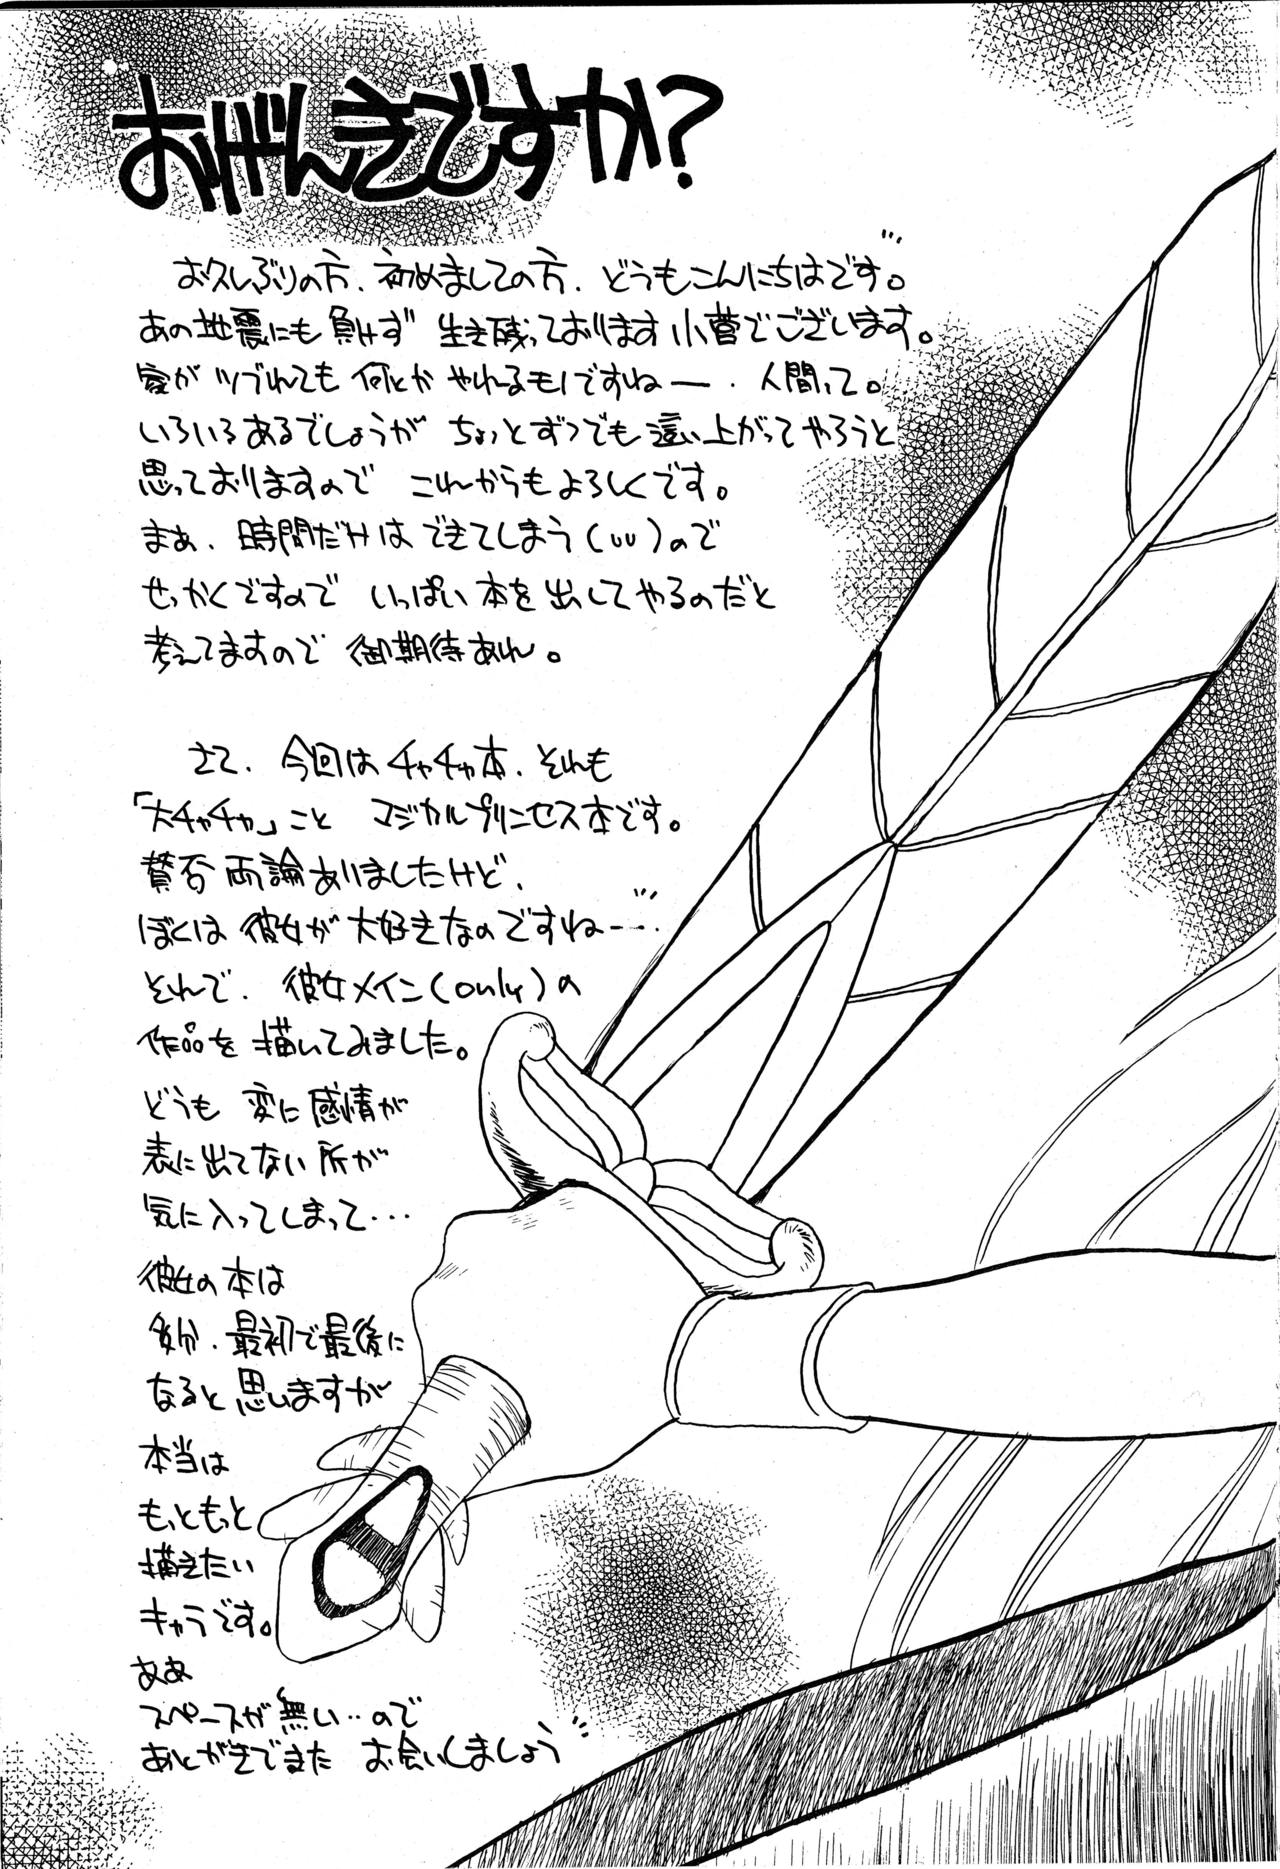 おげんきですか?
お久しぶりの方、初めましての方、どうもこんにちはです。
あの地震にも負けず 生き残っております小菅でございます。
家がツブれても 何とか やれるモノですねー、人間って。
いろいろあるでしょうが ちょっとずつでも這い上がってやろうと
思っておりますので これからもよろしくです。
まぁ、時間だけはできてしまう(いい)ので
せっかくですので いっぱい本を出してやるのだと
考えてますので 御期待あれ。
さて、今回はチャチャ本、それも
「大チャチャ」こと マジカルプリンセス本です。
賛否両論ありましたけど、
ぼくは彼女が大好きなのですねー…
それで、彼女メイン(only)の
作品を描いてみました。
どうも 変に感情が
表に出てない所が
気に入ってしまって…
彼女の本は
多分、最初で最後に
なると思いますが
本当は
もっともっと
描きたい
キャラです。
ああ
スペースが無い‥ので
あとがきでまた お会いしましょう